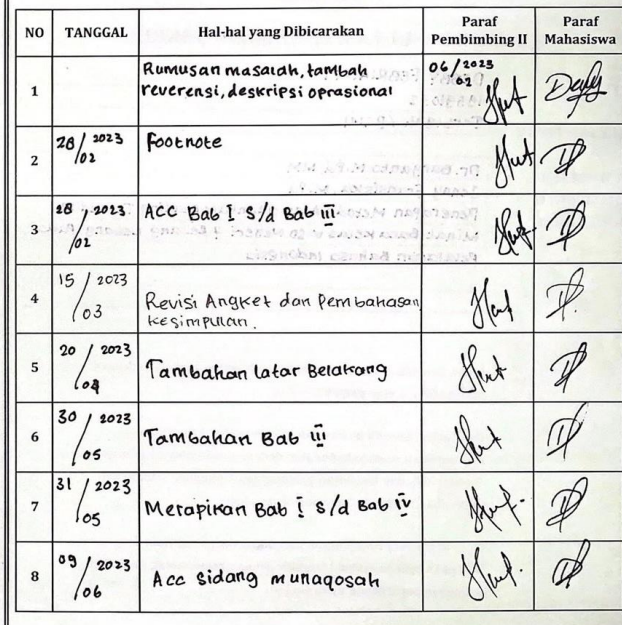 NO TANGGAL Hal-hal yang Dibicarakan Paraf Pembimbing II Paraf Mahasiswa
1 Rumusan masalah, tambah 06/2023
reverensi, deskripsi oprasional 02
2 28/2023 Footnote
02
3 28/2023 ACC Bab I s/d Bab III
02
4 15/2023
03 Revisi Angket dan Pembahasan
kesimpulan.
5 20/2023 Tambahan latar Belakang
6 30/2023 Tambahan Bab III
05
7 31/2023 Merapikan Bab I s/d Bab IV
05
8 09/2023 Acc sidang munaqosah
06